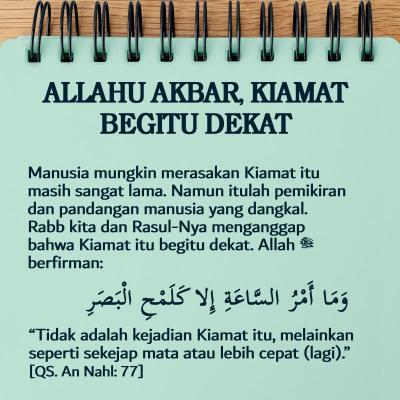 ALLAHU AKBAR, KIAMAT
BEGITU DEKAT
Manusia mungkin merasakan Kiamat itu
masih sangat lama. Namun itulah pemikiran
dan pandangan manusia yang dangkal.
Rabb kita dan Rasul-Nya menganggap
bahwa Kiamat itu begitu dekat. Allah ﷻ
berfirman:
وَمَا أَمْرُ السَّاعَةِ إِلا كَلَمْحِ الْبَصَرِ
“Tidak adalah kejadian Kiamat itu, melainkan
seperti sekejap mata atau lebih cepat (lagi).”
[QS. An Nahl: 77]